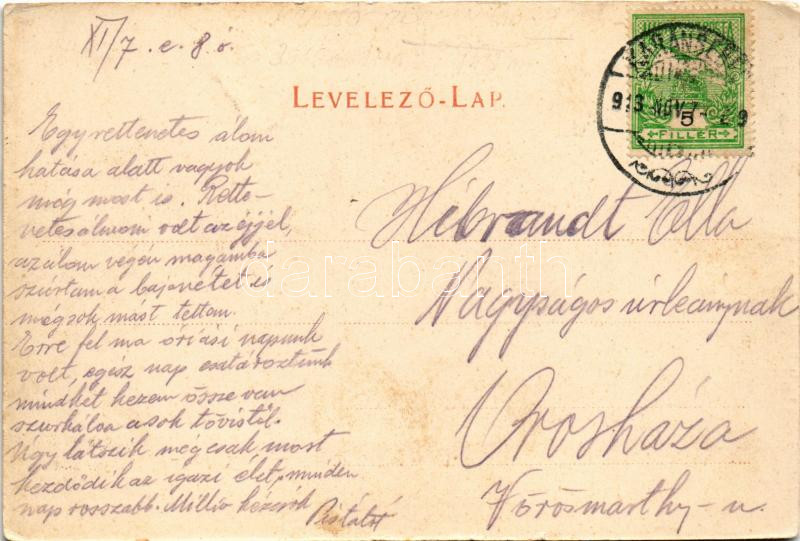 XI/7. e. 8 ó.
LEVELEZŐ-LAP.
KARÁNSEBES
913 NOV. 7
5
FILLÉR
Egy rettenetes álom
hatása alatt vagyok
még most is. Rette-
netes álmom volt az éjjel,
az álom végén magamba
szurtam a bajonétet is
még sok mást tettem.
Erre fel ma óriási napunk
volt, egész nap csatároztunk
mindkét kezem össze van
szurkálva a sok tövistől.
Úgy látszik még csak most
kezdődik az igazi élet, minden
nap rosszabb. Millió kézcsók
Pistától
Hébrandt Ella
Nagyságos úrleánynak
Orosháza
Vörösmarthy-u.
darabanth